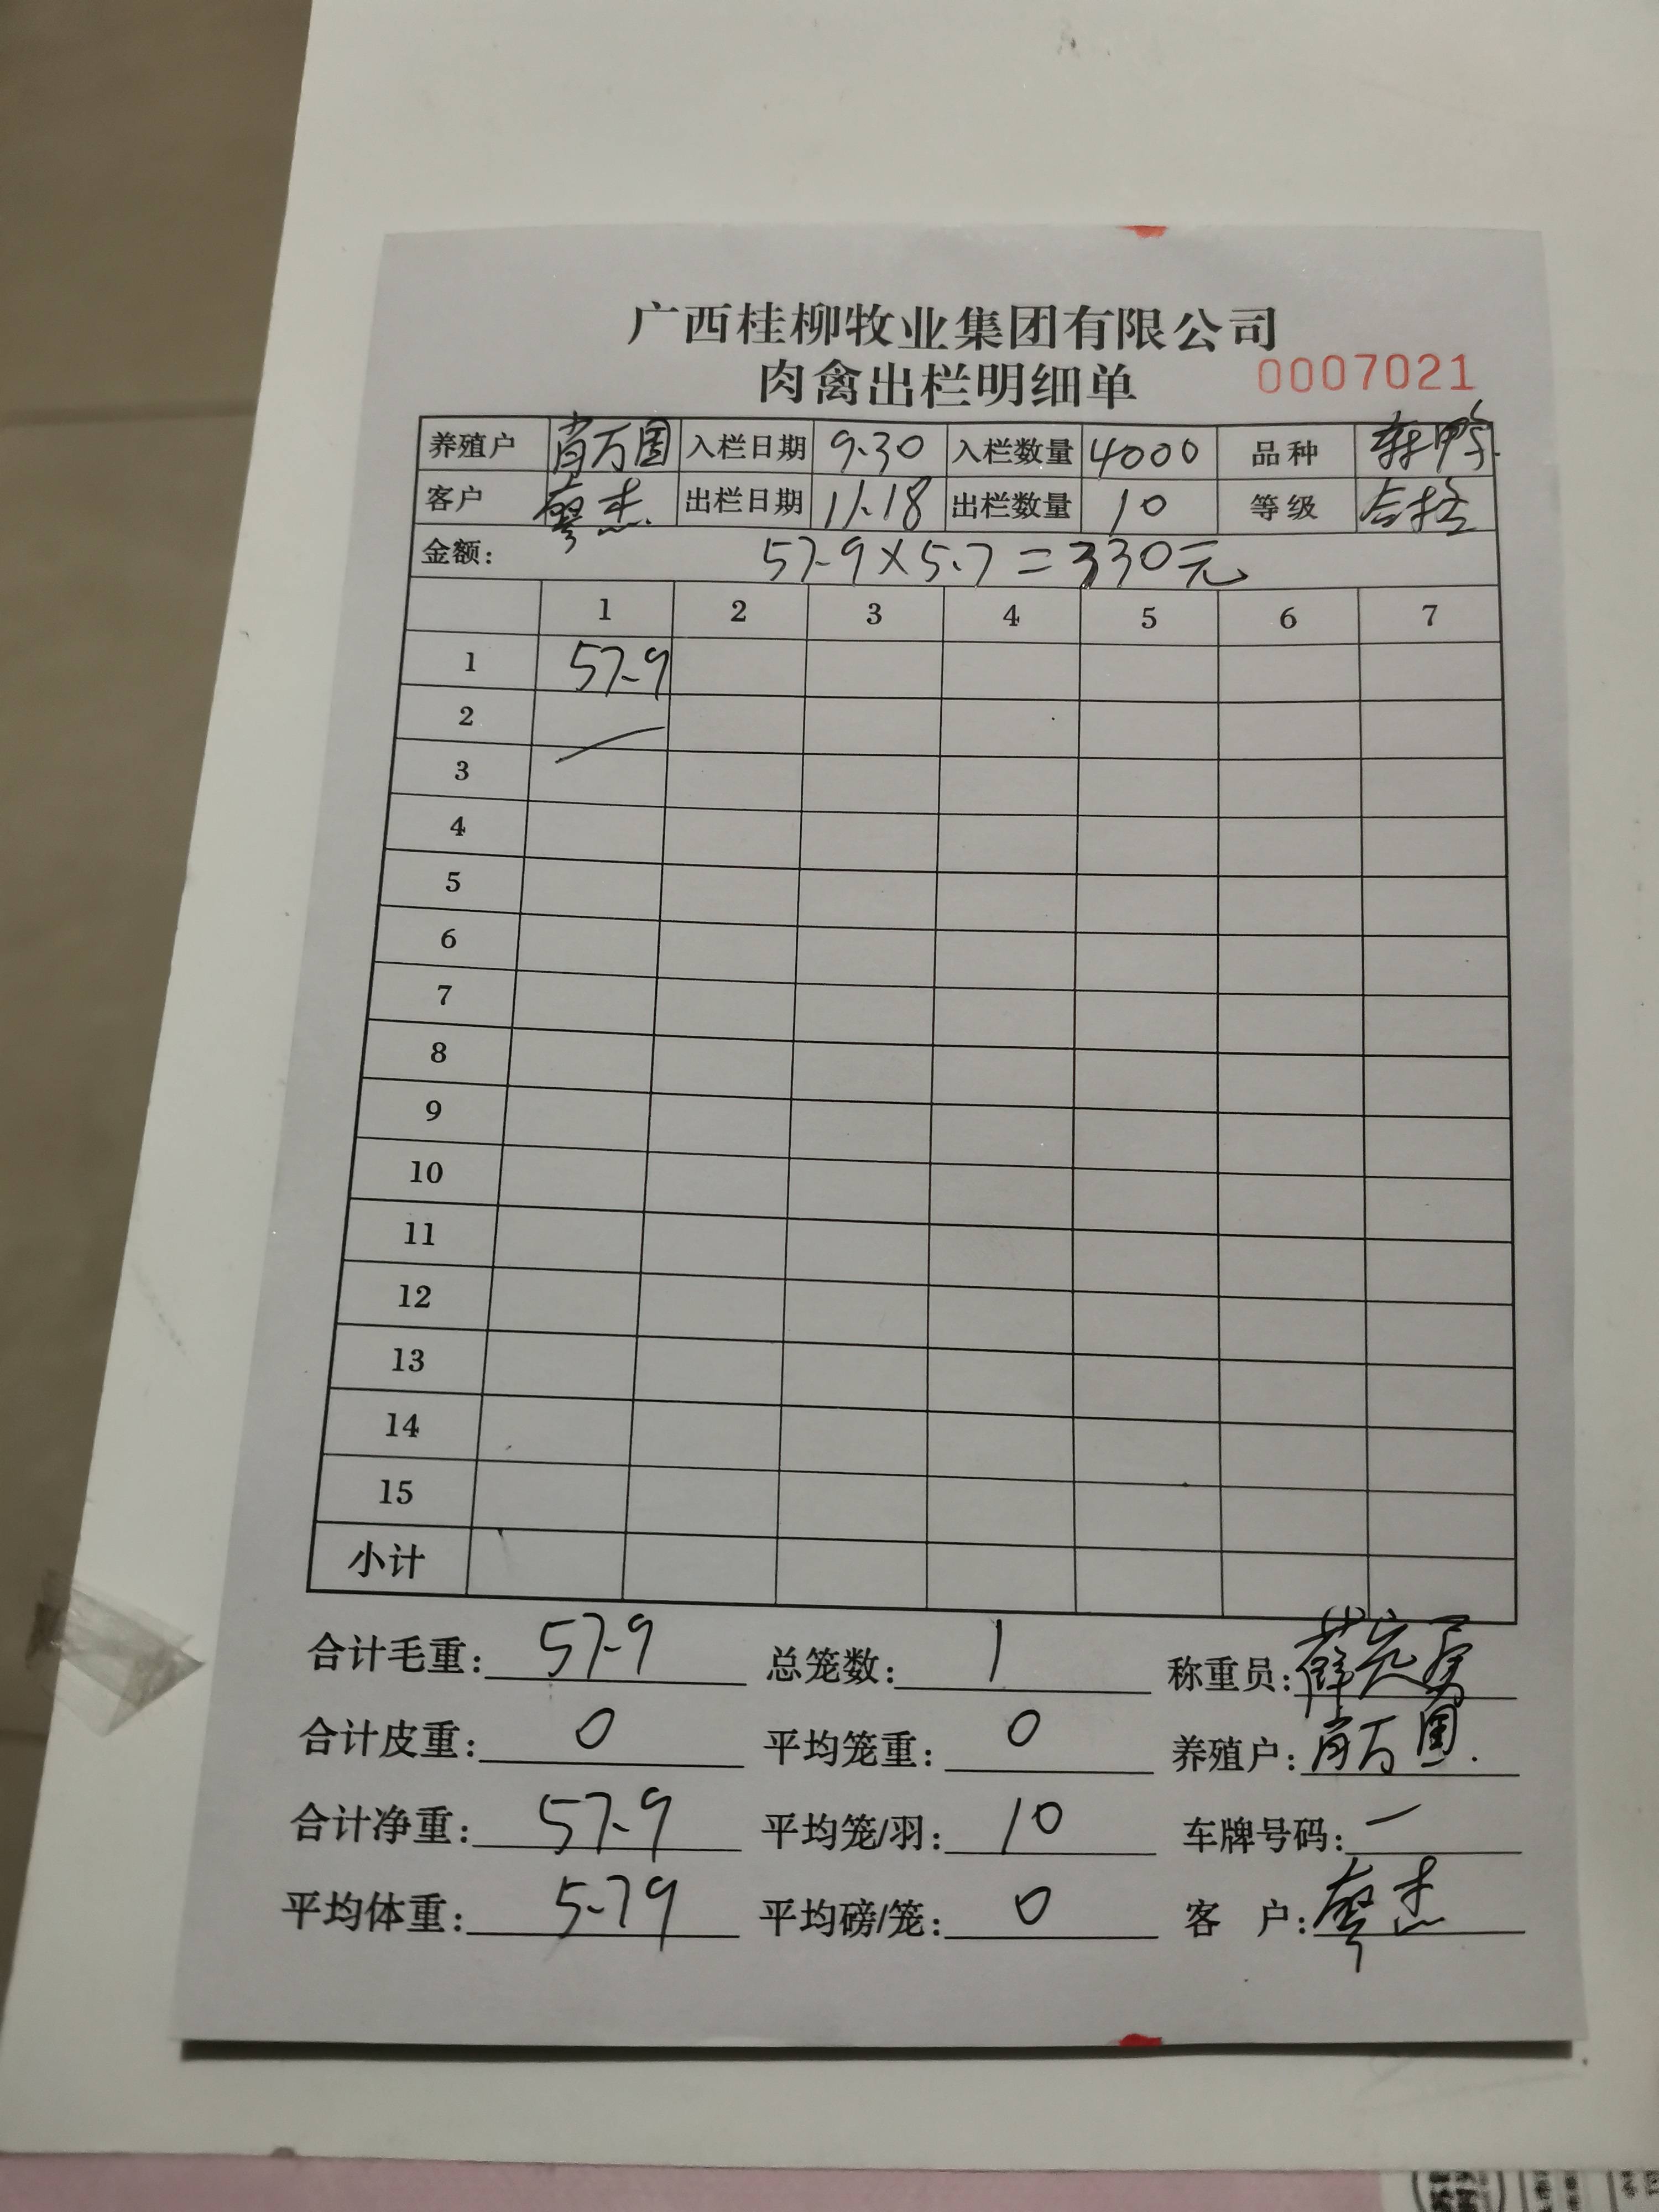 广西桂柳牧业集团有限公司
肉禽出栏明细单 0007021
养殖户 肖万国 入栏日期 9.30 入栏数量 4000 品种 鸭
客户 廖杰 出栏日期 11.18 出栏数量 10 等级 合格
金额: 57.9×5.7=330元
1 2 3 4 5 6 7
1 57.9
2
3
4
5
6
7
8
9
10
11
12
13
14
15
小计
合计毛重: 57.9 总笼数: 1 称重员: 薛
合计皮重: 0 平均笼重: 0 养殖户: 肖万国.
合计净重: 57.9 平均笼/羽: 10 车牌号码: 一
平均体重: 5.79 平均磅/笼: 0 客 户: 廖杰